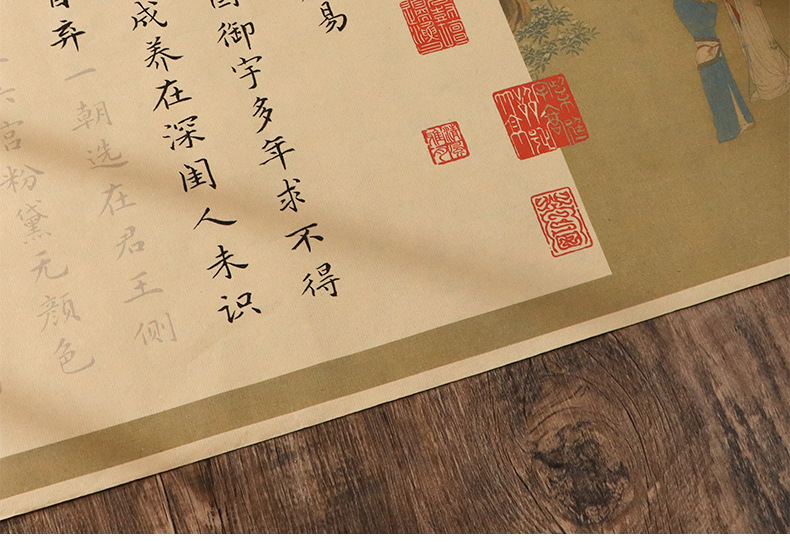 易
国御宇多年求不得
成养在深闺人未识
自弃一朝选在君王侧
六宫粉黛无颜色